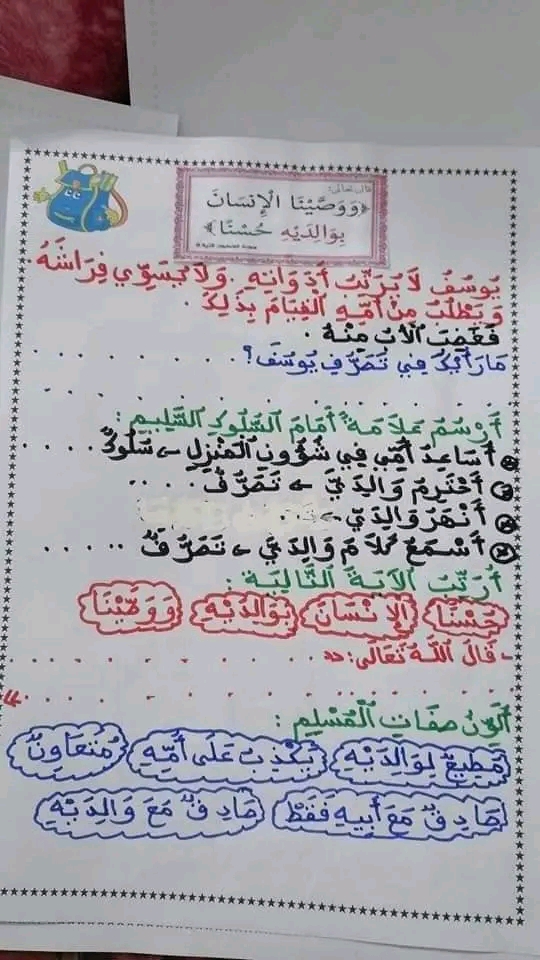 قال تعالى:
﴿وَوَصَّيْنَا الْإِنسَانَ
بِوَالِدَيْهِ حُسْنًا﴾
يُوسُفُ لَا يُرَتِّبُ أَدَوَاتِهِ. وَلَا يُسَوِّي فِرَاشَهُ
وَيَطْلُبُ مِنْ أُمِّهِ الْقِيَامَ بِذَلِكَ.
فَغَضِبَ الْأَبُ مِنْهُ.
مَا رَأْيُكَ فِي تَصَرُّفِ يُوسُفَ؟ . . . . . . . . . .
. . . . . . . . . . . . . . . . . . . .
أَرْسُمُ عَلَامَةً أَمَامَ السُّلُوكِ السَّلِيمِ:
أُسَاعِدُ أُمِّي فِي شُؤُونِ الْمَنْزِلِ ← سُلُوكٌ . . . .
أَحْتَرِمُ وَالِدَيَّ ← تَصَرُّفٌ . . . . .
أَنْهَرُ وَالِدَيَّ ← . . .
أَسْمَعُ كَلَامَ وَالِدَيَّ ← تَصَرُّفٌ . . . . . .
أُرَتِّبُ الْآيَةَ التَّالِيَةَ:
حُسْنًا الْإِنْسَانَ بِوَالِدَيْهِ وَوَصَّيْنَا
- قَالَ اللَّهُ تَعَالَى: « . . . . . . . . . .
. . . . . . . . . . . . . . . . . . »
أُلَوِّنُ صِفَاتِ الْمُسْلِمِ:
مُطِيعٌ لِوَالِدَيْهِ يَكْذِبُ عَلَى أُمِّهِ مُتَعَاوِنٌ
صَادِقٌ مَعَ أَبِيهِ فَقَطْ صَادِقٌ مَعَ وَالِدَيْهِ